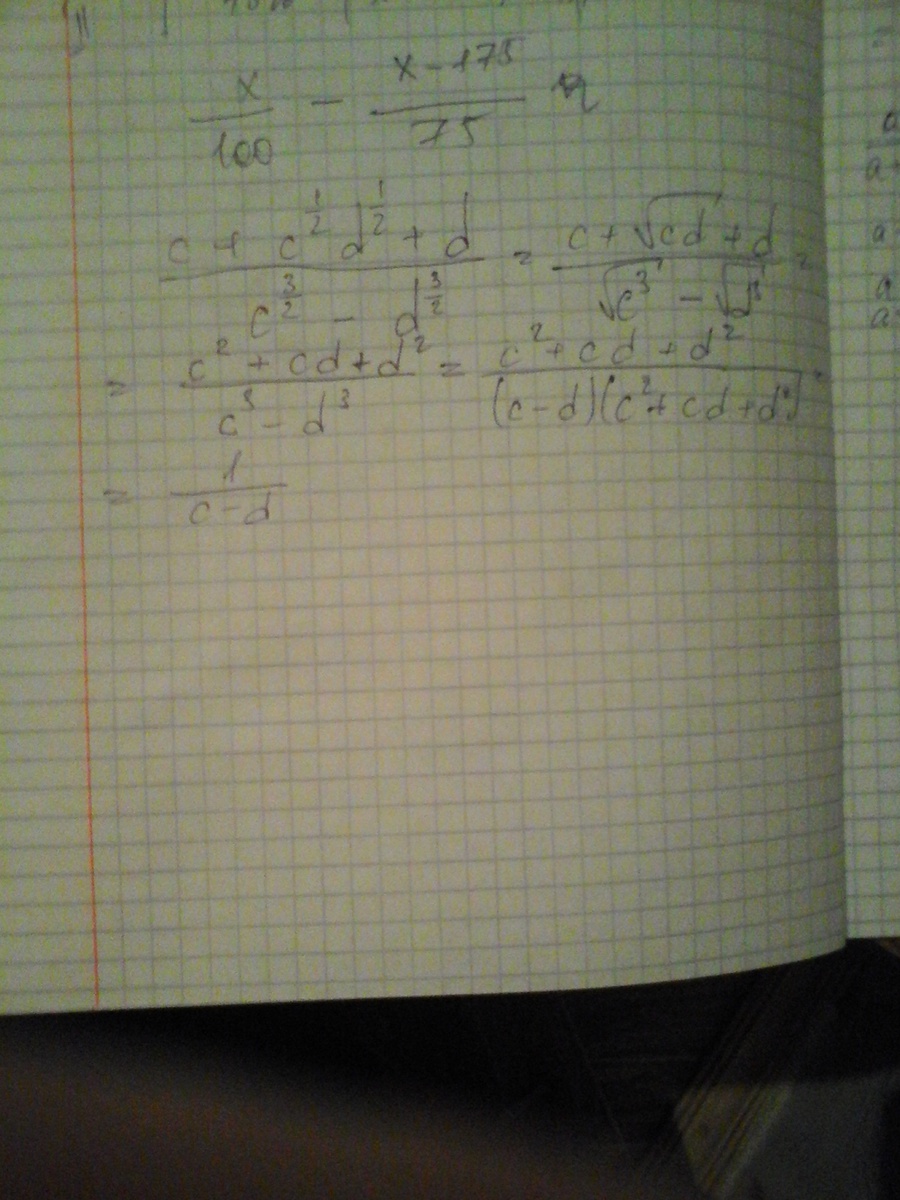 x/100 - (x-175)/75
(c + c^(1/2) d^(1/2) + d)/(c^(3/2) - d^(3/2)) = (c + √(cd) + d)/(√(c^3) - √(d^3)) =
= (c^2 + cd + d^2)/(c^3 - d^3) = (c^2 + cd + d^2)/((c-d)(c^2 + cd + d^2)) =
= 1/(c-d)